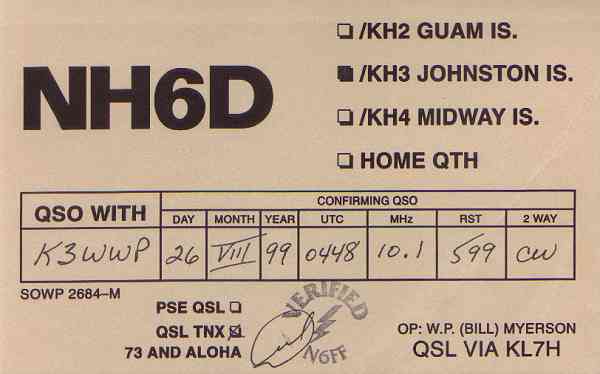 NH6D
☐ /KH2 GUAM IS.
■ /KH3 JOHNSTON IS.
☐ /KH4 MIDWAY IS.
☐ HOME QTH
QSO WITH
CONFIRMING QSO
DAY MONTH YEAR UTC MHz RST 2 WAY
K3WWP 26 VIII 99 0448 10.1 599 CW
SOWP 2684–M
PSE QSL ☐
QSL TNX ☑
73 AND ALOHA
VERIFIED
N6FF
OP: W.P. (BILL) MYERSON
QSL VIA KL7H